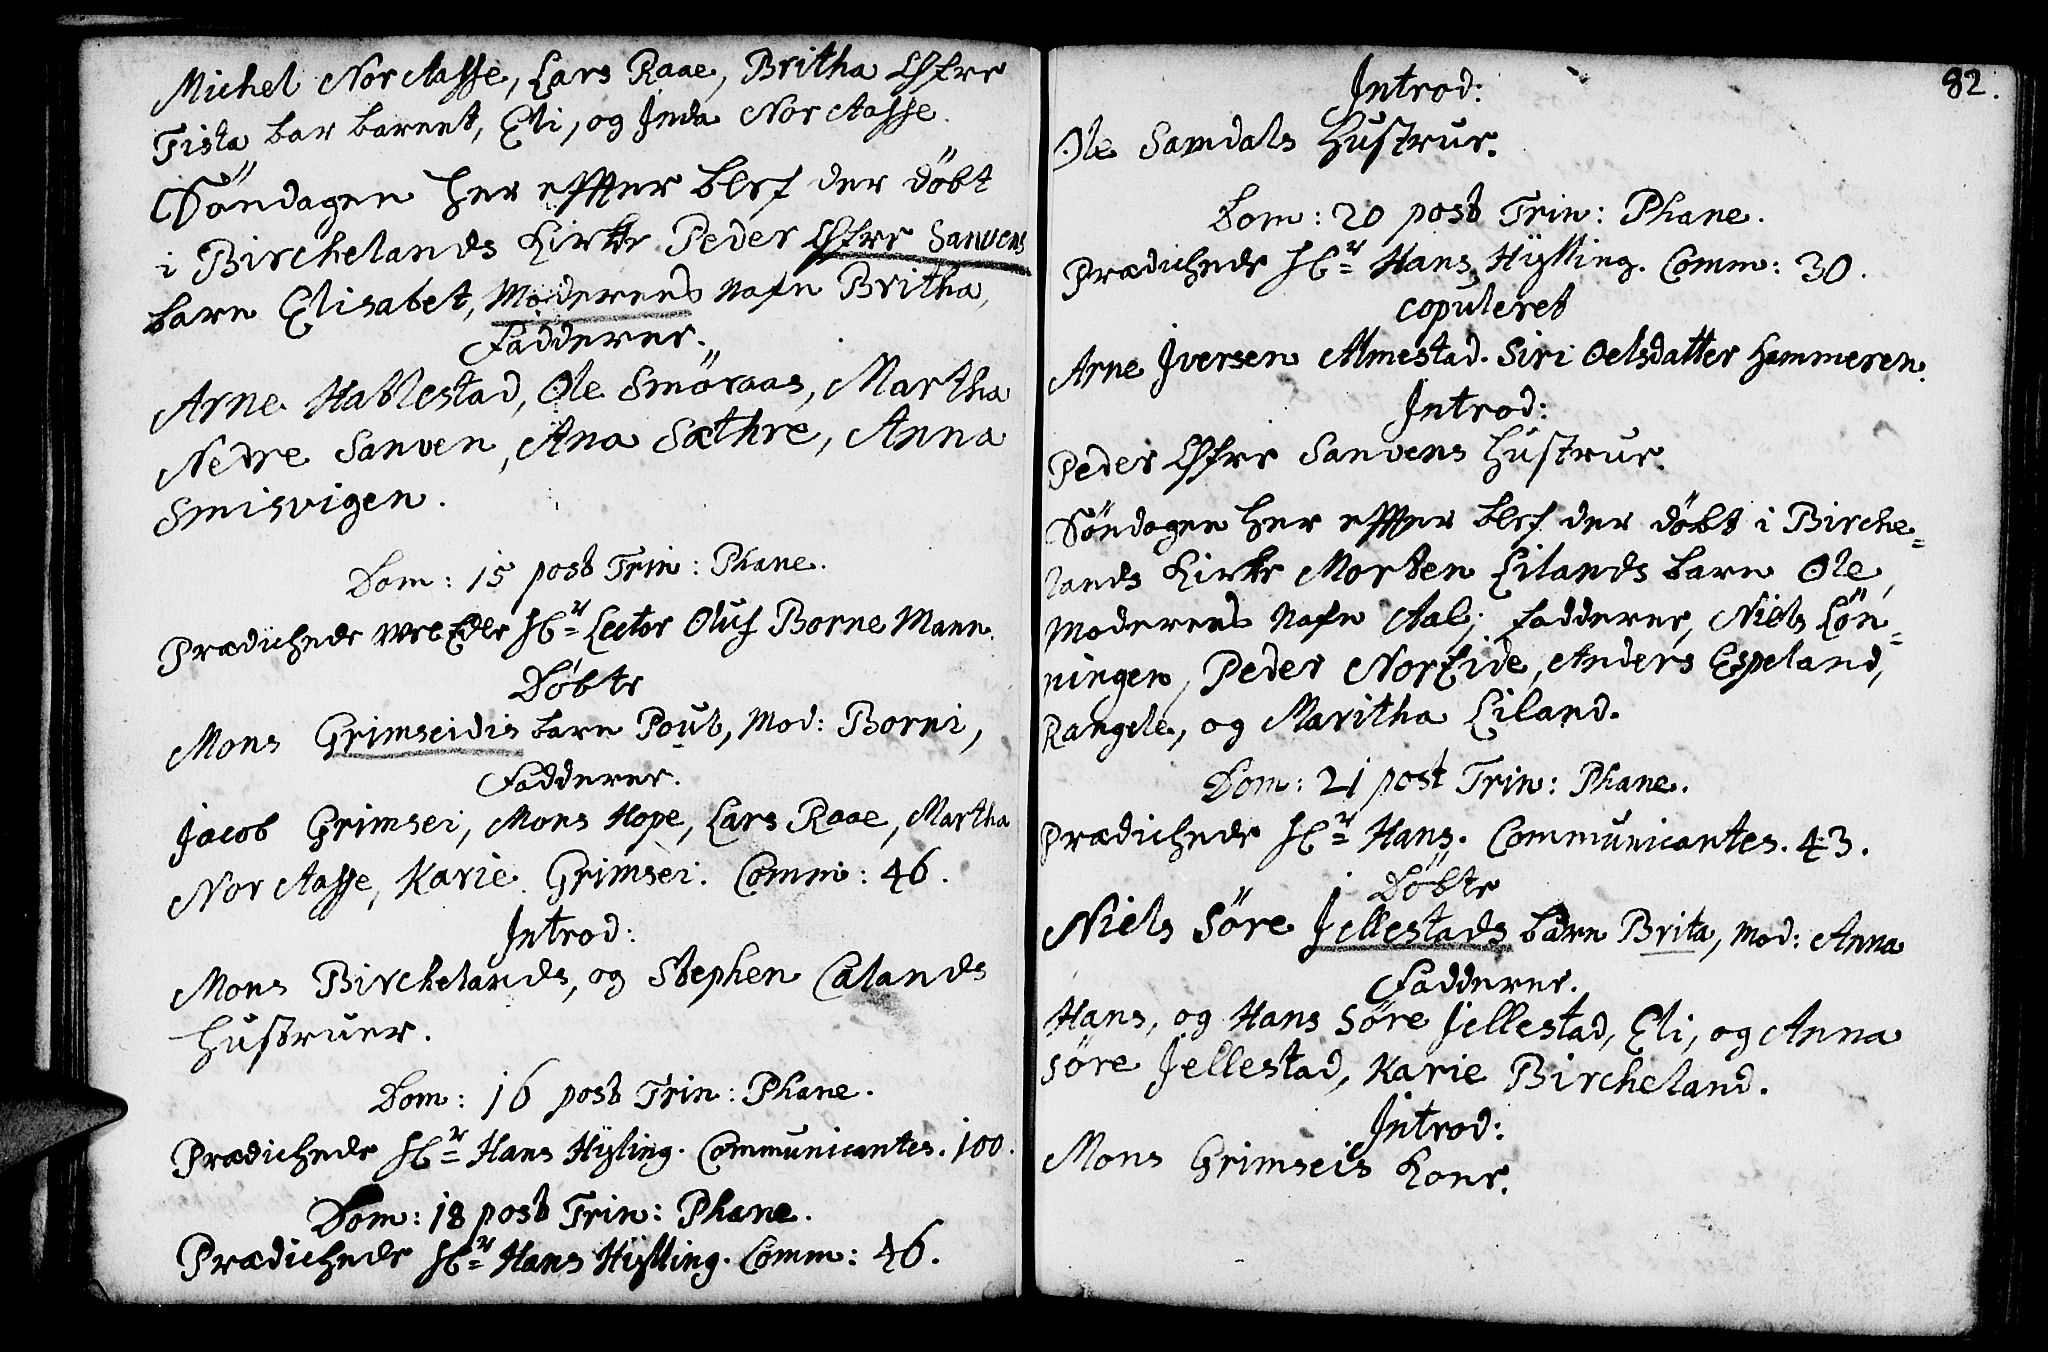 Michel Nor Aasse, Lars Raae, Britha Øfre
Tista bar barnet, Eli, og Inda Nor Aasse.
Søndagen her effter blef der døbt
i Birchelands Kircke Peder Øfre Sanvens
barn Elisabet, Moderens Nafn Britha,
Fadderne.
Arne Hatlestad, Ole Smøraas, Martha
Nedre Sanven, Ana Sæthre, Anna
Smisvigen.
Dom: 15 post Trin: Phane.
Prædichede Hr= Lector Oluf Borneman.
Døbte
Mons Grimseidis barn Poul, Mod: Borni,
Fadderne.
Jacob Grimsei, Mons Hope, Lars Raae, Martha
Nor Aasse, Karie Grimsei. Comm: 46.
Introd:
Mons Birchelands, og Stephen Calands
Hustruer.
Dom: 16 post Trin: Phane.
Prædichede Hr= Hans Hÿling. Communicantes. 100.
Dom: 18 post Trin: Phane.
Prædichede Hr= Hans Hÿtling. Comm: 46.
82.
Introd:
Ole Samdals Hustrue.
Dom: 20 post Trin: Phane.
Prædichede Hr= Hans Hÿtling. Comm: 30.
copuleret
Arne Iversen Almestad. Siri Oelsdatter Hammeren.
Introd:
Peder Øfre Sanvens Hustrue.
Søndagen her effter blef der døbt i Birche=
lands Kircke Morten Lilands barn Ole,
Moderens Nafn Aal; Fadderne, Niels Løn=
ningen, Peder Nortide, Anders Espeland,
Rangele, og Maritha Liland.
Dom: 21 post Trin: Phane.
Prædichede Hr= Hans. Communicantes. 43.
Døbte
Niels Søre Jellestads barn Brita, Mod: Anna
Fadderne.
Hans, og Hans Søre Jellestad, Eli, og Anna
Søre Jellestad, Karie Bircheland.
Introd:
Mons Grimseis Kone.